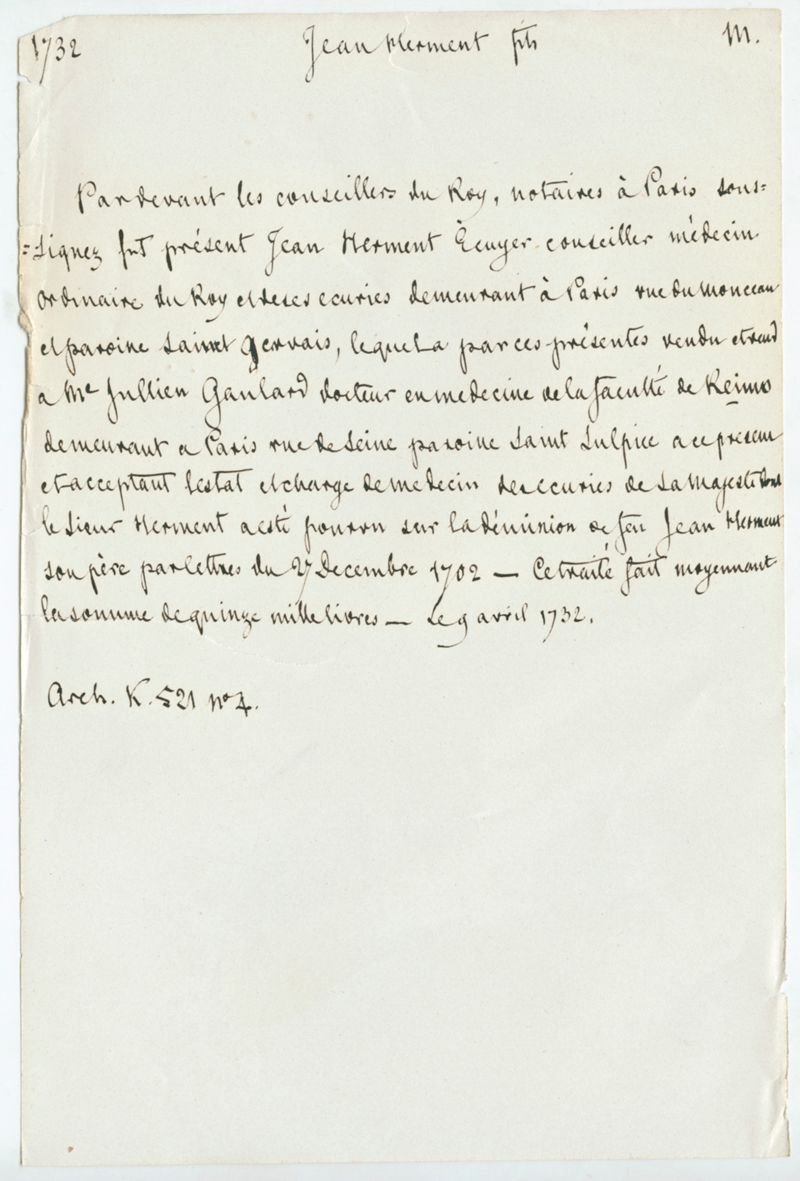 1732 Jean Herment fils M.
Par devant les conseillers du Roy, notaires à Paris sous=
=signez fut présent Jean Herment Ecuyer conseiller médecin
ordinaire du Roy et de ses ecuries demeurant à Paris rue du monceau
et paroisse Sainet Gervais, lequel a par ces présentes vendu et vend
a Me Jullien Gaulard docteur en medecine de la faculté de Reims
demeurant a Paris rue de Seine paroisse Saint Sulpice a ce present
et acceptant l'estat et charge de medecin des ecuries de Sa Majesté dont
le Sieur Herment a esté pourvu sur la démission de feu Jean Herment
son père par lettres du 27 Decembre 1702 — Ce traité fait moyennant
la somme de quinze mille livres — Le 9 avril 1732.
Arch. K. 521 no 4.